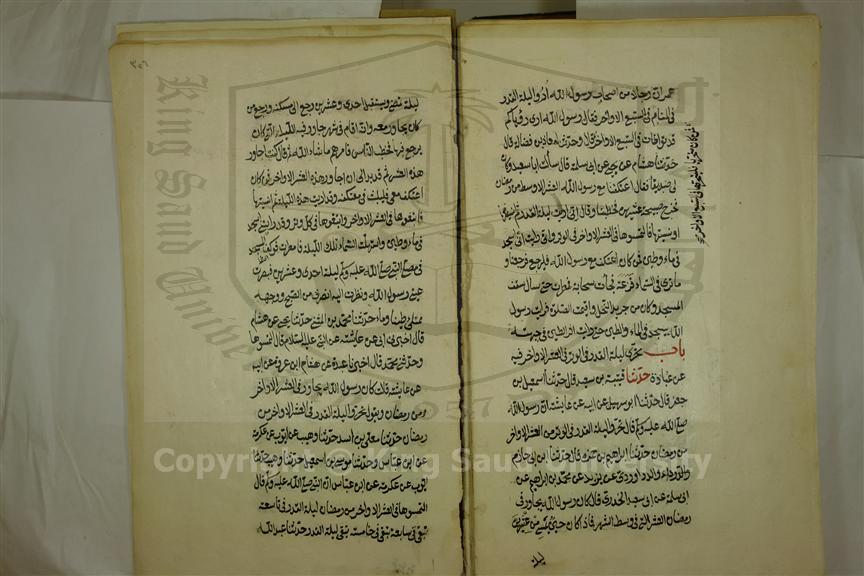 عمران رجلا من اصحاب رسول الله اروا ليلة القدر
في المنام في السبع الاواخر فقال رسول الله ارى رؤياكم
قد تواطات في السبع الاواخر
فمن كان متحريها فليتحرها في السبع الاواخر
حدثنا هشام عن يحيى عن ابي سلمة قال سالت ابا سعيد وكان
لي صديقا فقال اعتكفنا مع رسول الله العشر الاوسط من رمضان
فخرج صبيحة عشرين فخطبنا وقال اني اريت ليلة القدر ثم انسيتها
او نسيتها فالتمسوها في العشر الاواخر في الوتر واني رايت اني اسجد
في ماء وطين فمن كان اعتكف مع رسول الله فليرجع فرجعنا و
ما نرى في السماء قزعة فجاءت سحابة فمطرت حتى سال سقف
المسجد وكان من جريد النخل واقيمت الصلوة فرايت رسول
الله يسجد في الماء والطين حتى رايت اثر الطين في جبهته
باب تحري ليلة القدر في الوتر في العشر الاواخر فيه
عن عبادة حدثنا قتيبة بن سعيد قال حدثنا اسمعيل بن
جعفر قال حدثنا ابو سهيل عن ابيه عن عائشة ان رسول الله
صلى الله عليه وسلم قال تحروا ليلة القدر في الوتر من العشر الاواخر
من رمضان حدثنا ابراهيم بن حمزة قال حدثنا ابن ابي حازم
والدراوردي عن يزيد عن محمد بن ابراهيم عن
ابي سلمة عن ابي سعيد الخدري قال كان رسول الله يجاور في
رمضان العشر التي في وسط الشهر فاذا كان حين يمسي من عشرين
ليلة
٣٥٦
ليلة تمضي ويستقبل احدى وعشرين رجع الى مسكنه ورجع من
كان يجاور معه وانه اقام في شهر جاور فيه الليلة التي كان
يرجع فيها فخطب الناس فامرهم ما شاء الله ثم قال كنت اجاور
هذه العشر ثم قد بدا لي ان اجاور هذه العشر الاواخر فمن كان
اعتكف معي فليثبت في معتكفه وقد اريت هذه الليلة ثم انسيتها
فابتغوها في العشر الاواخر وابتغوها في كل وتر وقد رايتني اسجد
في ماء وطين واستهلت السماء تلك الليلة فامطرت فوكف المسجد
في مصلى النبي صلى الله عليه وسلم ليلة احدى وعشرين فبصرت
عيني رسول الله ونظرت اليه انصرف من الصبح ووجهه
ممتلئ طينا وماء حدثنا محمد بن المثنى حدثنا يحيى عن هشام
قال اخبرني ابي عن عائشة عن النبي عليه السلام قال التمسوها
وحدثني محمد قال اخبرنا عبدة عن هشام ابن عروة عن ابيه
عن عائشة قالت كان رسول الله يجاور في العشر الاواخر
من رمضان ويقول تحروا ليلة القدر في العشر الاواخر من
رمضان حدثنا معلى بن اسد حدثنا وهيب عن ايوب عن عكرمة
عن ابن عباس وحدثنا موسى بن اسمعيل حدثنا وهيب حدثنا
ايوب عن عكرمة عن ابن عباس ان النبي صلى الله عليه وسلم قال
التمسوها في العشر الاواخر من رمضان ليلة القدر في تاسعة
تبقى في سابعة تبقى في خامسة تبقى ليلة القدر حدثنا عبد الله
King Saud University
1957
Copyright © King Saud University